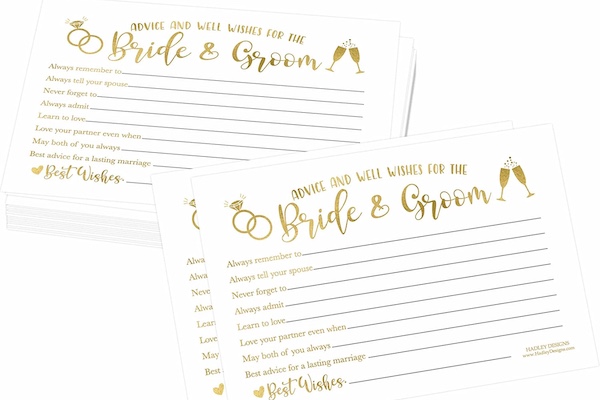 ADVICE AND WELL WISHES FOR THE
Bride & Groom
Always remember to
Always tell your spouse
Never forget to
Always admit
Learn to love
Love your partner even when
May both of you always
Best advice for a lasting marriage
Best Wishes,
ADVICE AND WELL WISHES FOR THE
Bride & Groom
Always remember to
Always tell your spouse
Never forget to
Always admit
Learn to love
Love your partner even when
May both of you always
Best advice for a lasting marriage
Best Wishes,
HADLEY DESIGNS
www.HadleyDesigns.com
Always
Always
Never
Always
Learn
Love
May
Best